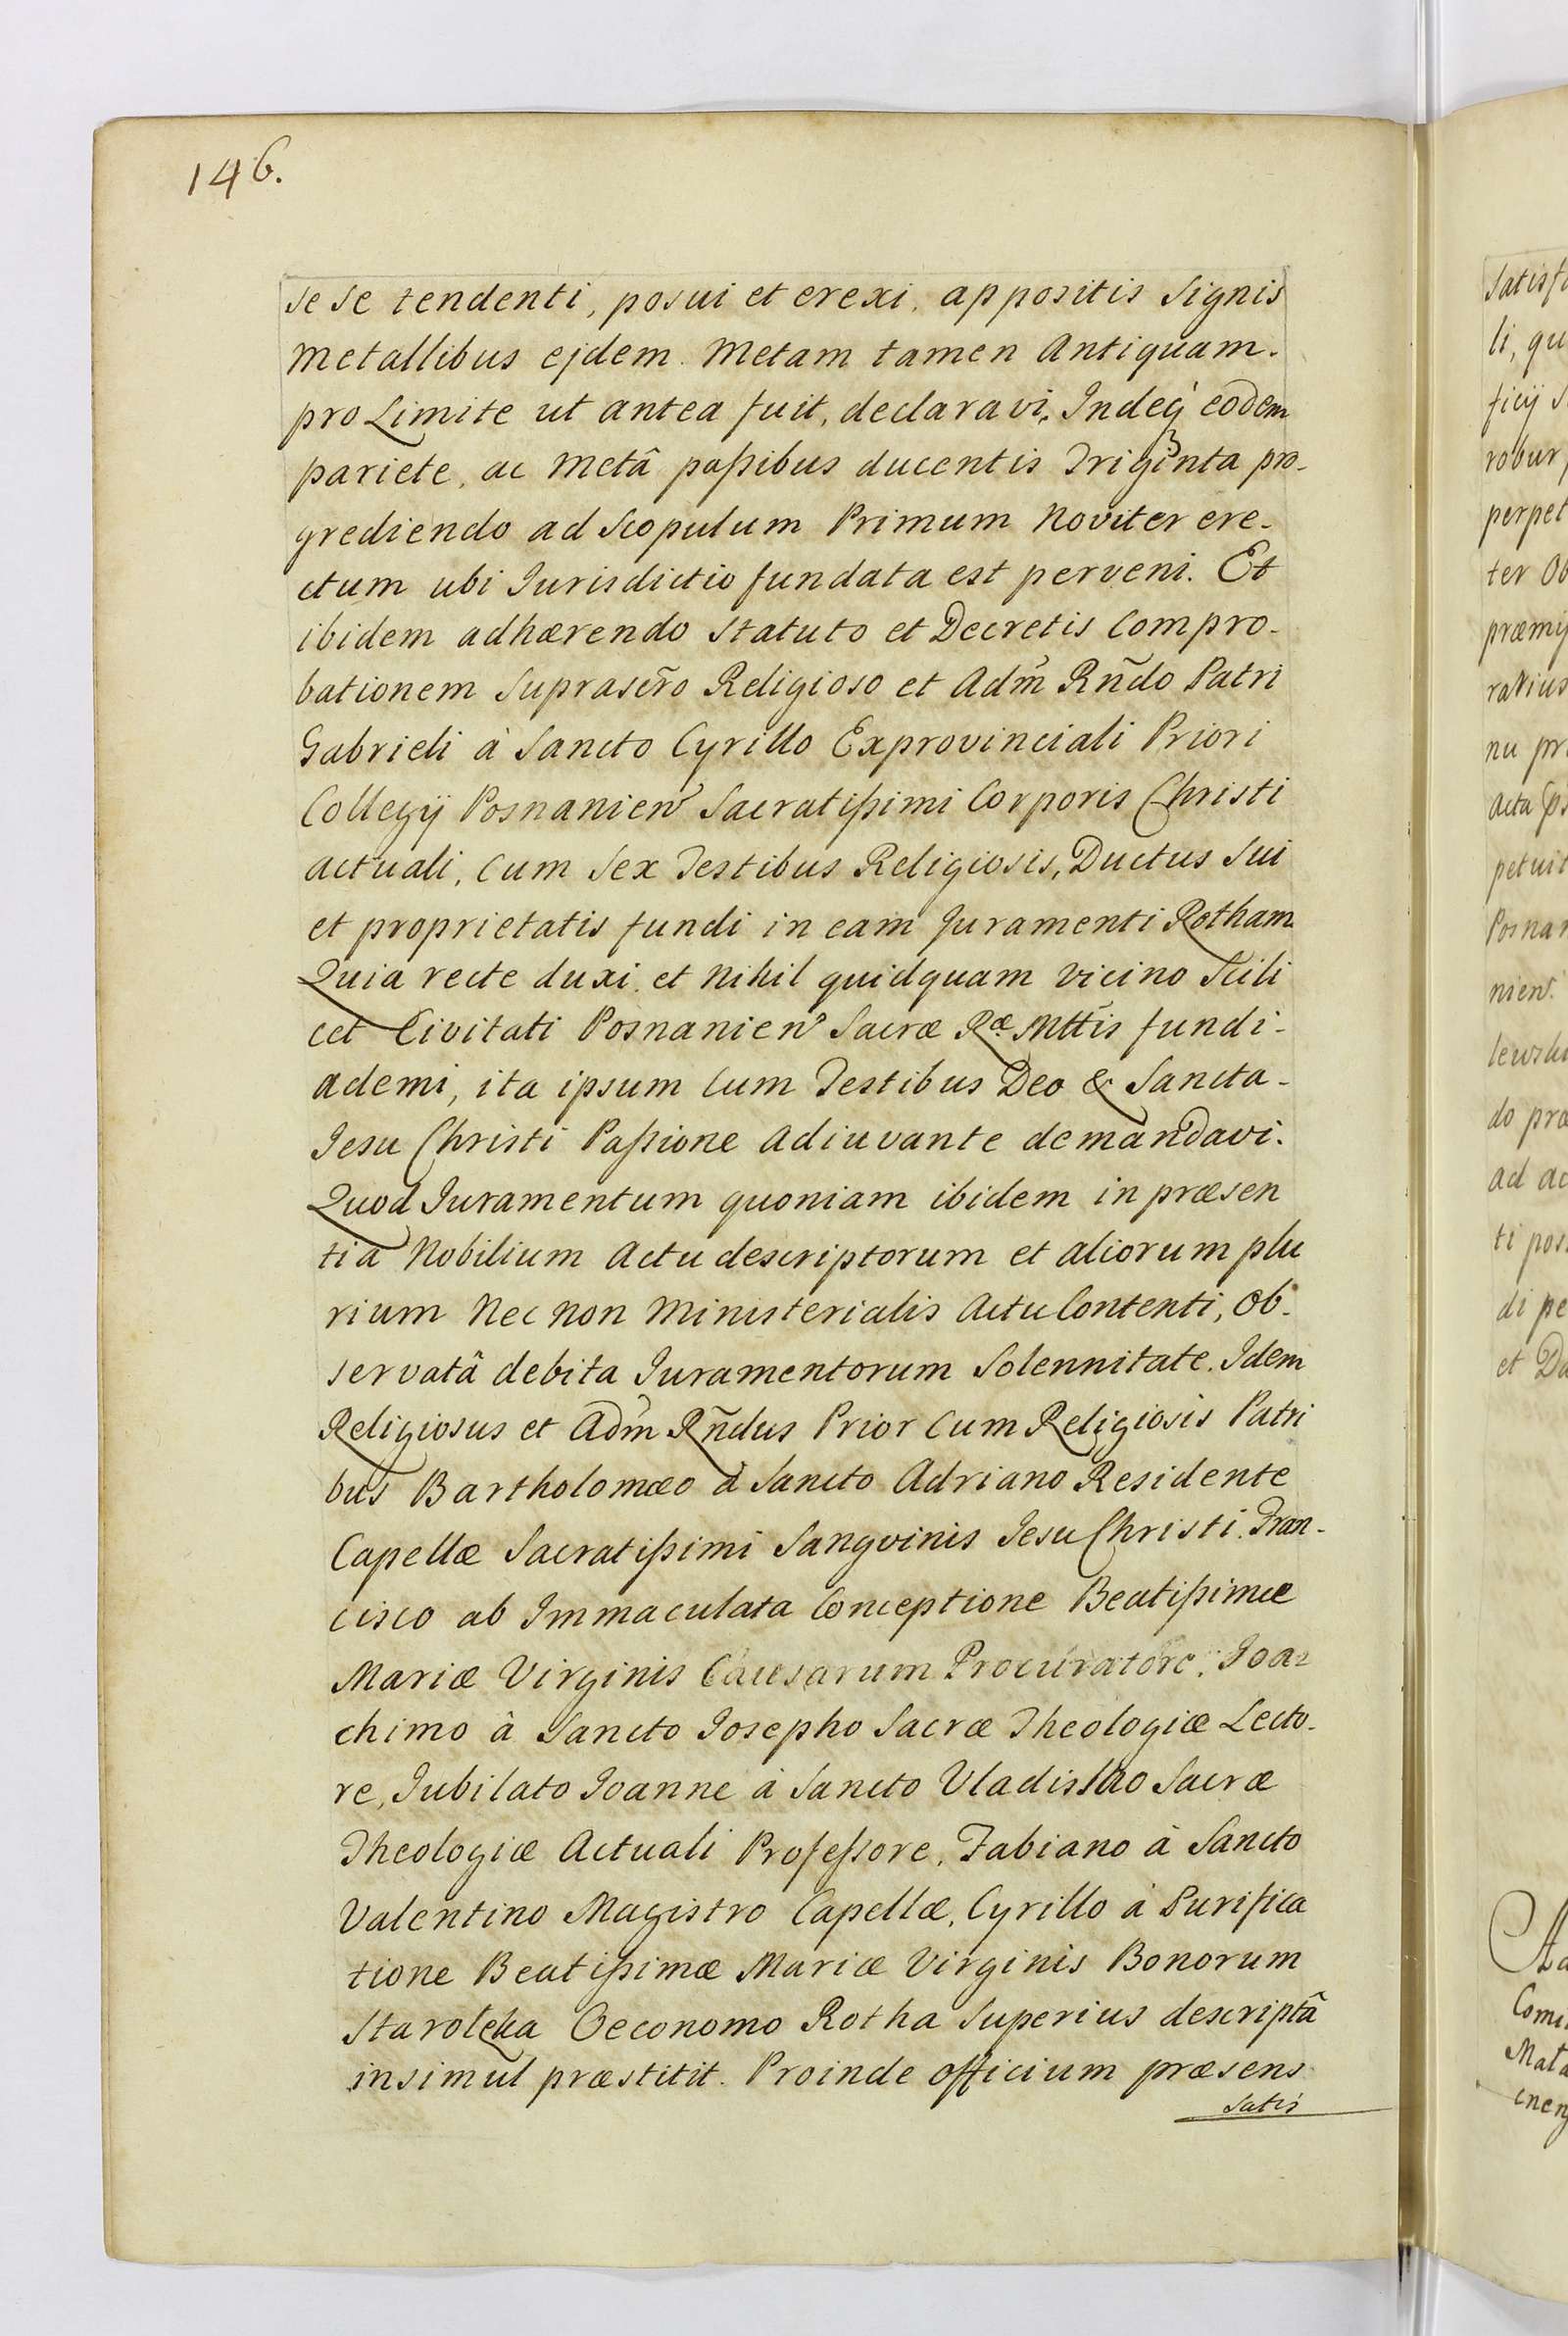 146.
se se tendenti, posui et erexi, appositis Signis
metallibus ejdem. Metam tamen Antiquam.
pro Limite ut antea fuit, declaravi. Indeq́ꝫ eodem
pariete, ac metâ paßibus ducentis Triginta pro-
grediendo ad Scopulum Primum Noviter ere-
ctum ubi Jurisdictio fundata est perveni. Et
ibidem adhærendo statuto et Decretis Compro-
bationem Suprascr̃o Religioso et Adm̃ Rñdo Patri
Gabrieli à Sancto Cyrillo Exprovinciali Priori
Collegij Posnanien̛ Sacratißimi Corporis Christi
actuali, Cum Sex Testibus Religiosis, Ductus Sui
et proprietatis fundi in eam Juramenti Rotham
Quia recte duxi, et nihil quidquam vicino Scili
cet Civitati Posnanien̛ Sacræ Rᵆ Mttis fundi-
ademi, ita ipsum Cum Testibus Deo & Sancta-
Jesu Christi Paßione Adiuvante demandavi.
Quod Juramentum quoniam ibidem in præsen
tia Nobilium Actu descriptorum et aliorum plu
rium Nec non Ministerialis Actu Contenti, Ob-
servatâ debita Juramentorum Solennitate. Idem
Religiosus et Adm̃ Rñdus Prior Cum Religiosis Patri
bus Bartholomæo à Sancto Adriano Residente
Capellæ Sacratißimi Sangvinis Jesu Christi. Fran-
cisco ab Immaculata Conceptione Beatißimæ
Mariæ Virginis Causarum Procuratore, Joa-
chimo à Sancto Josepho Sacræ Theologiæ Lecto-
re, Jubilato Joanne à Sancto Vladislao Sacræ
Theologiæ Actuali Profeßore, Fabiano à Sancto
Valentino Magistro Capellæ, Cyrillo à Purifica
tione Beatißimæ Mariæ Virginis Bonorum
Starolęka Oeconomo Rotha Superius descriptâ
insimul præstitit. Proinde officium præsens
Satis